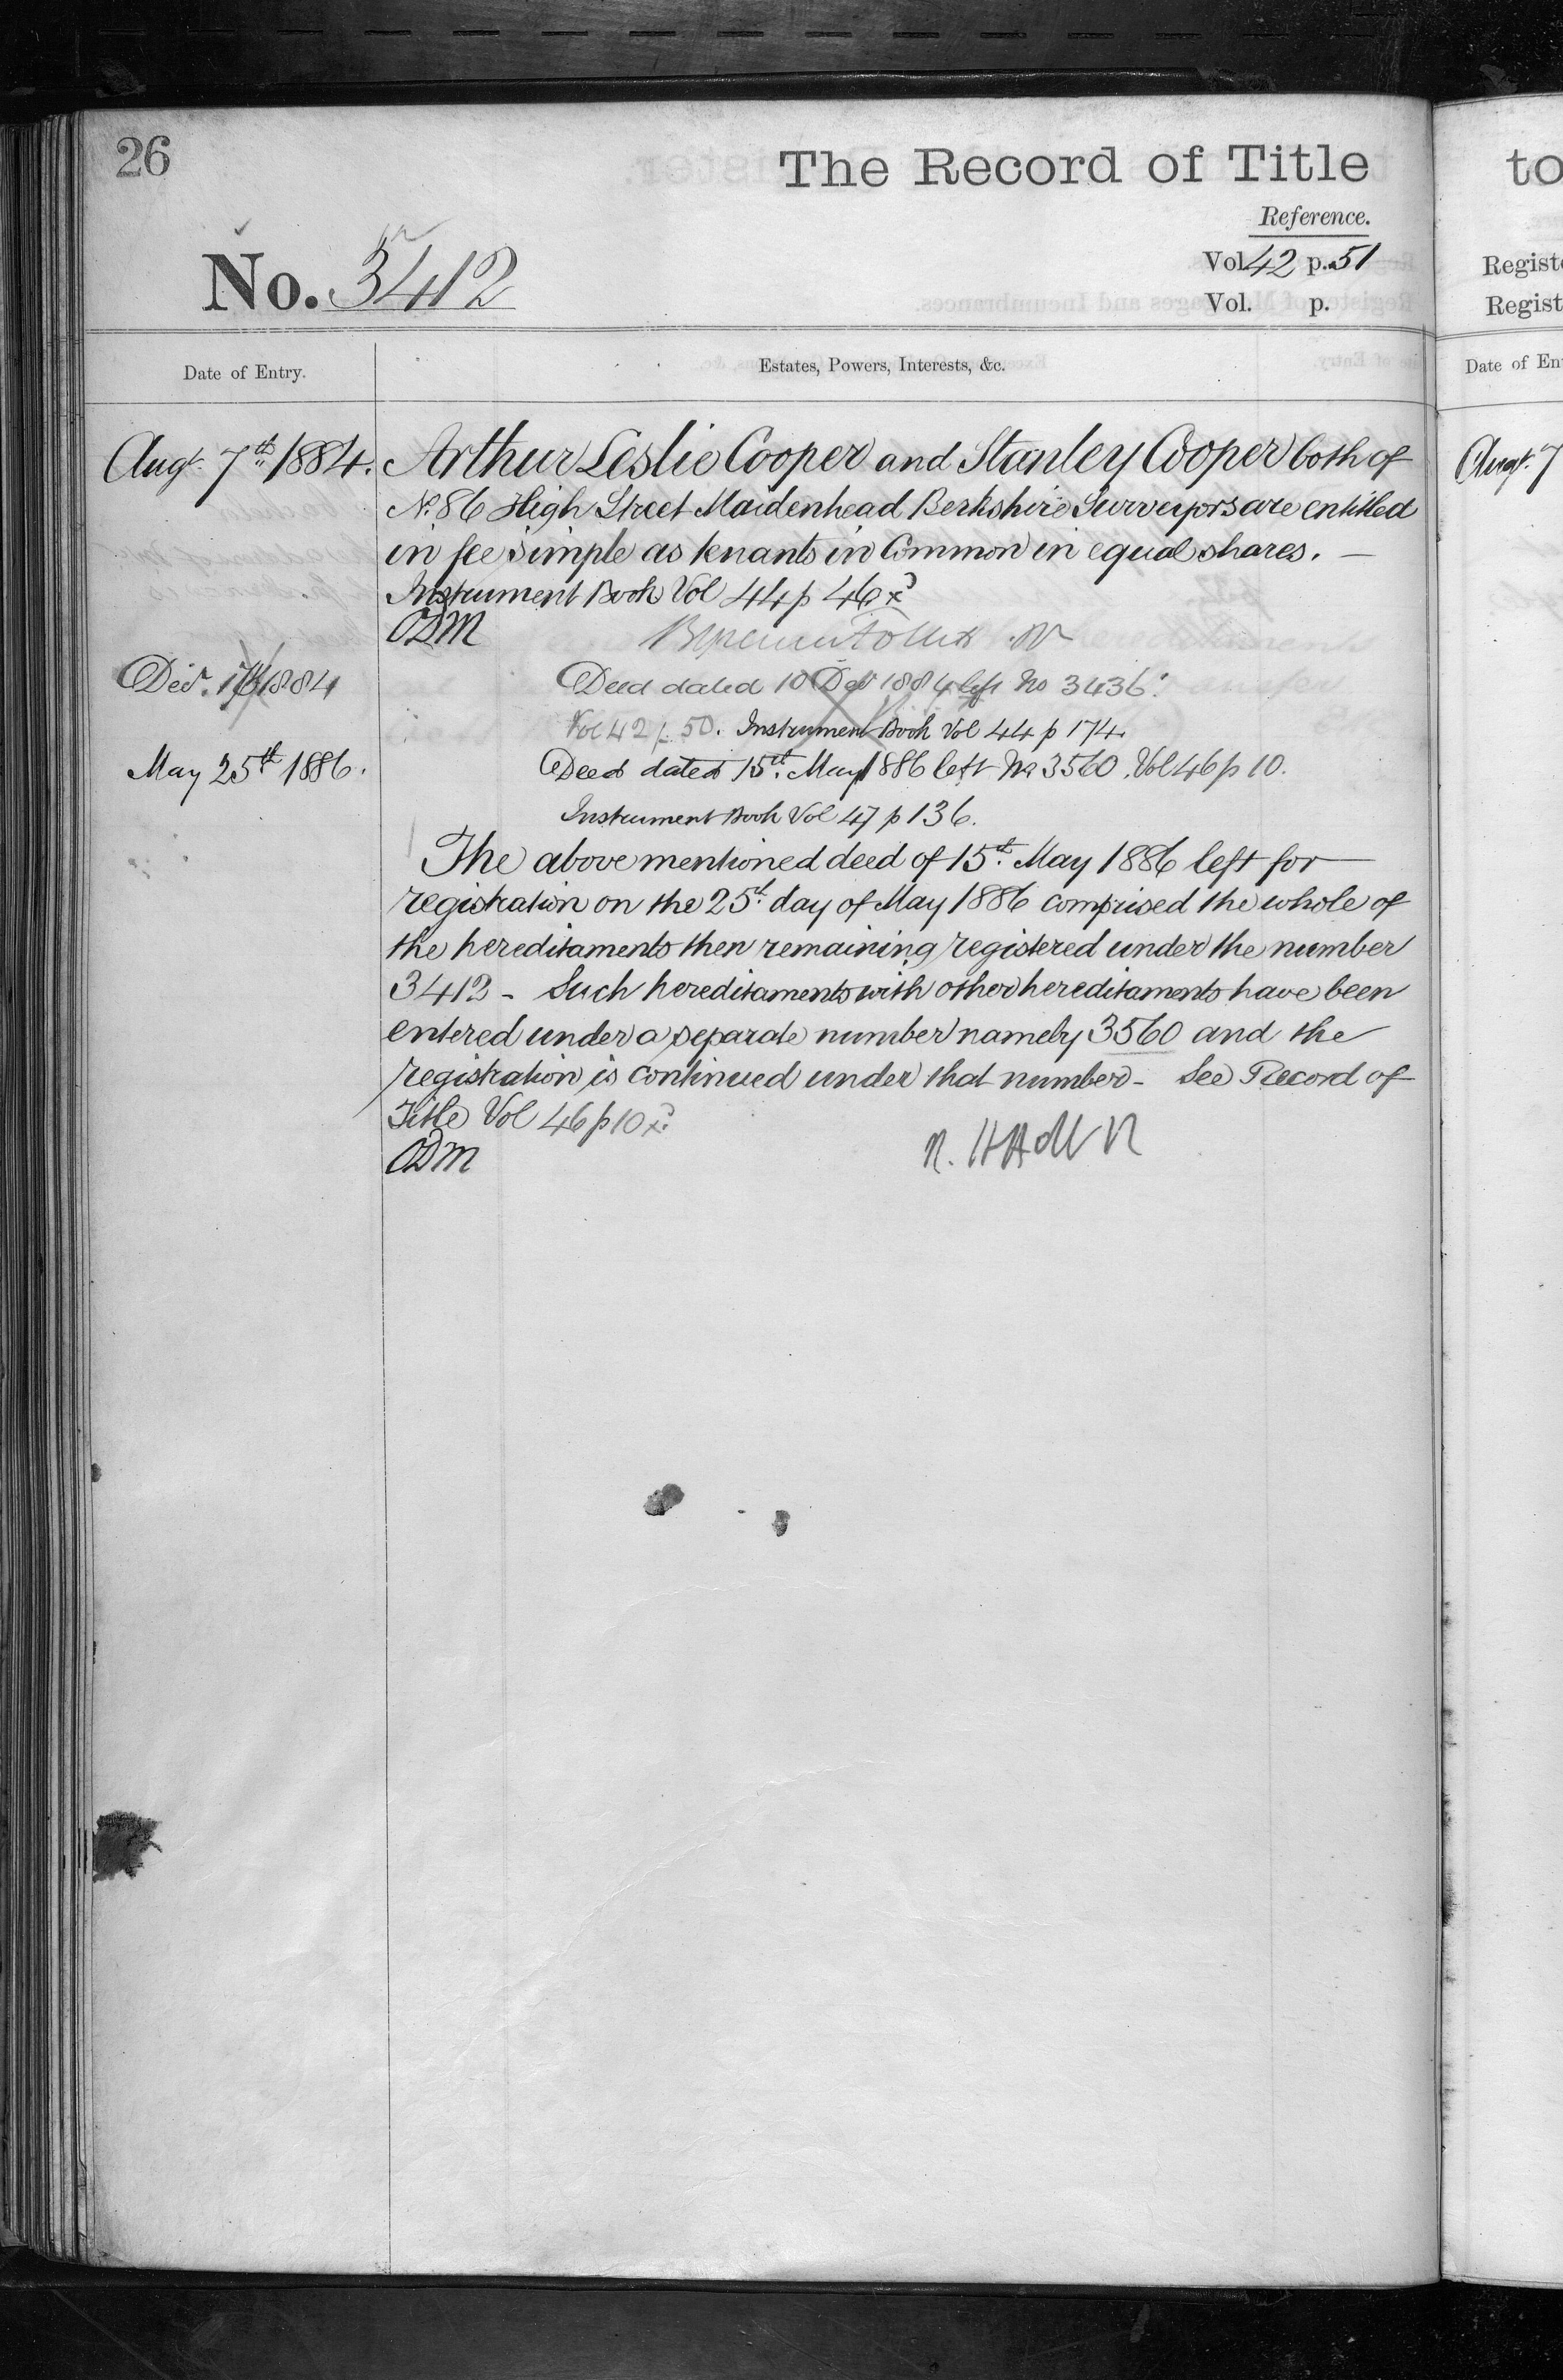 26
The Record of Title
Reference.
No. 3412
Vol. 42 p. 51
Vol. p.
Date of Entry.
Estates, Powers, Interests, &c.
Augt. 7th 1884. Arthur Leslie Cooper and Stanley Cooper both of
No. 86 High Street Maidenhead Berkshire Surveyors are entitled
in fee simple as tenants in Common in equal shares. —
Instrument Book Vol 44 p 46 xd
ODM
Decr. 1884 Deed dated 10 Decr 1884 left No 3436.
Vol 42 p. 50. Instrument Book Vol 44 p 174.
May 25th 1886. Deed dated 15th. May 1886 left No 3560. Vol 46 p 10.
Instrument Book Vol 47 p 136.
The above mentioned deed of 15th. May 1886 left for —
registration on the 25th. day of May 1886 comprised the whole of
the hereditaments then remaining registered under the number
3412 - Such hereditaments with other hereditaments have been
entered under a separate number namely 3560 and the
registration is continued under that number - See Record of
Title Vol 46 p 10 xd
ODM
to
Registe
Regist
Date of En
Augt. 7